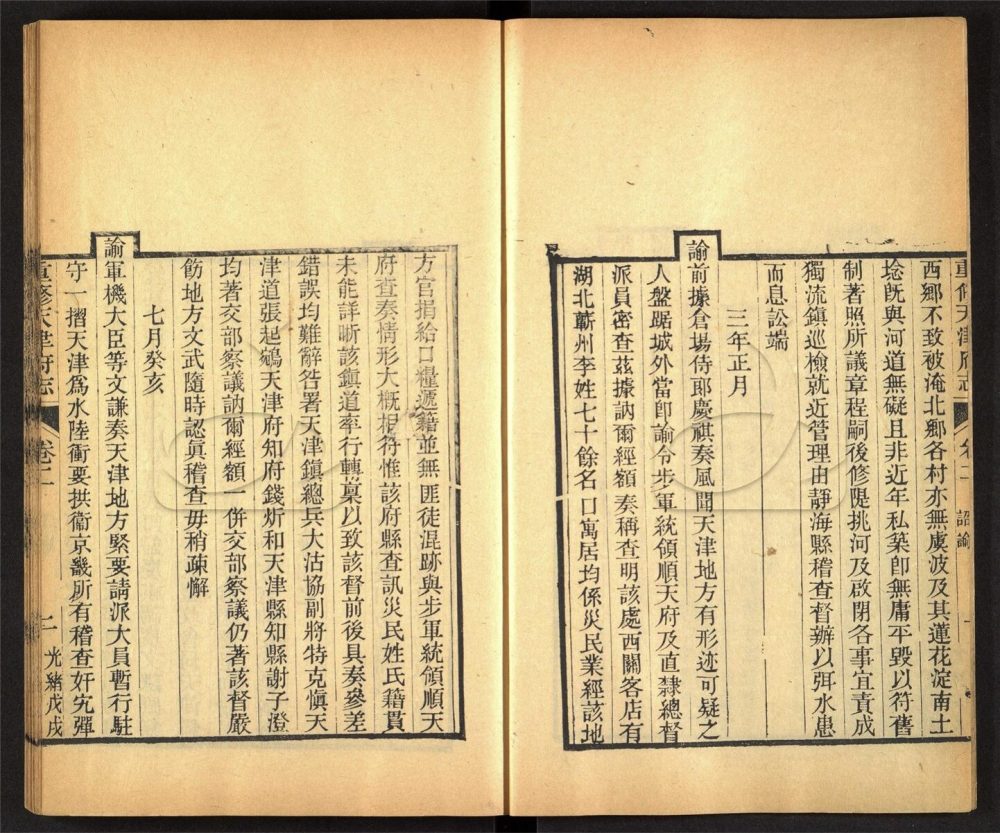 重修天津府志 卷二 詔諭
西鄉不致被淹北鄉各村亦無虞波及其蓮花淀南土
埝旣與河道無礙且非近年私築卽無庸平毀以符舊
制著照所議章程嗣後修隄挑河及啟閉各事宜責成
獨流鎮巡檢就近管理由靜海縣稽查督辦以弭水患
而息訟端
三年正月
諭前據倉場侍郎慶祺奏風聞天津地方有形迹可疑之
人盤踞城外當卽諭令步軍統領順天府及直隸總督
派員密查茲據訥爾經額奏稱查明該處西關客店有
湖北蘄州李姓七十餘名口寓居均係災民業經該地
方官捐給口糧遞籍並無匪徒混跡與步軍統領順天
府查奏情形大概相符惟該府縣查訊災民姓氏籍貫
未能詳晰該鎮道率行轉稟以致該督前後具奏參差
錯誤均難辭咎署天津鎮總兵大沽協副將特克愼天
津道張起鵷天津府知府錢炘和天津縣知縣謝子澄
均著交部察議訥爾經額一併交部察議仍著該督嚴
飭地方文武隨時認眞稽查毋稍疎懈
七月癸亥
諭軍機大臣等文謙奏天津地方緊要請派大員暫行駐
守一摺天津爲水陸衝要拱衞京畿所有稽查奸宄彈
重修天津府志 卷二 二 光緒戊戌